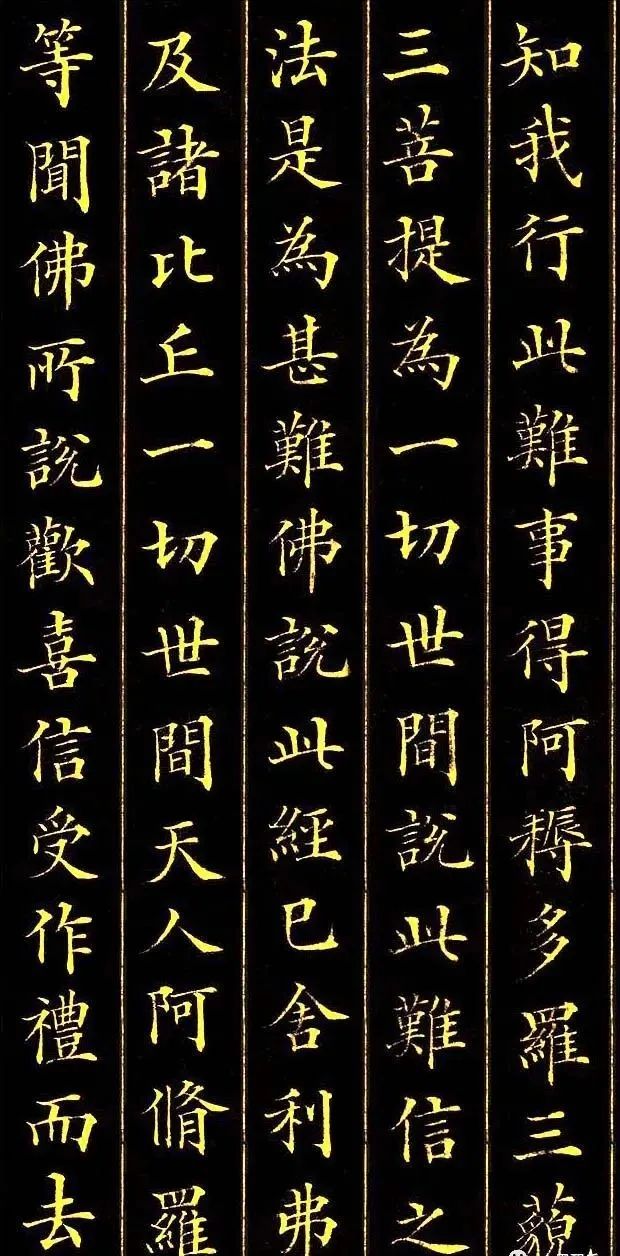 知我行此難事得阿耨多羅三藐
三菩提為一切世間說此難信之
法是為甚難佛說此經已舍利弗
及諸比丘一切世間天人阿脩羅
等聞佛所說歡喜信受作禮而去